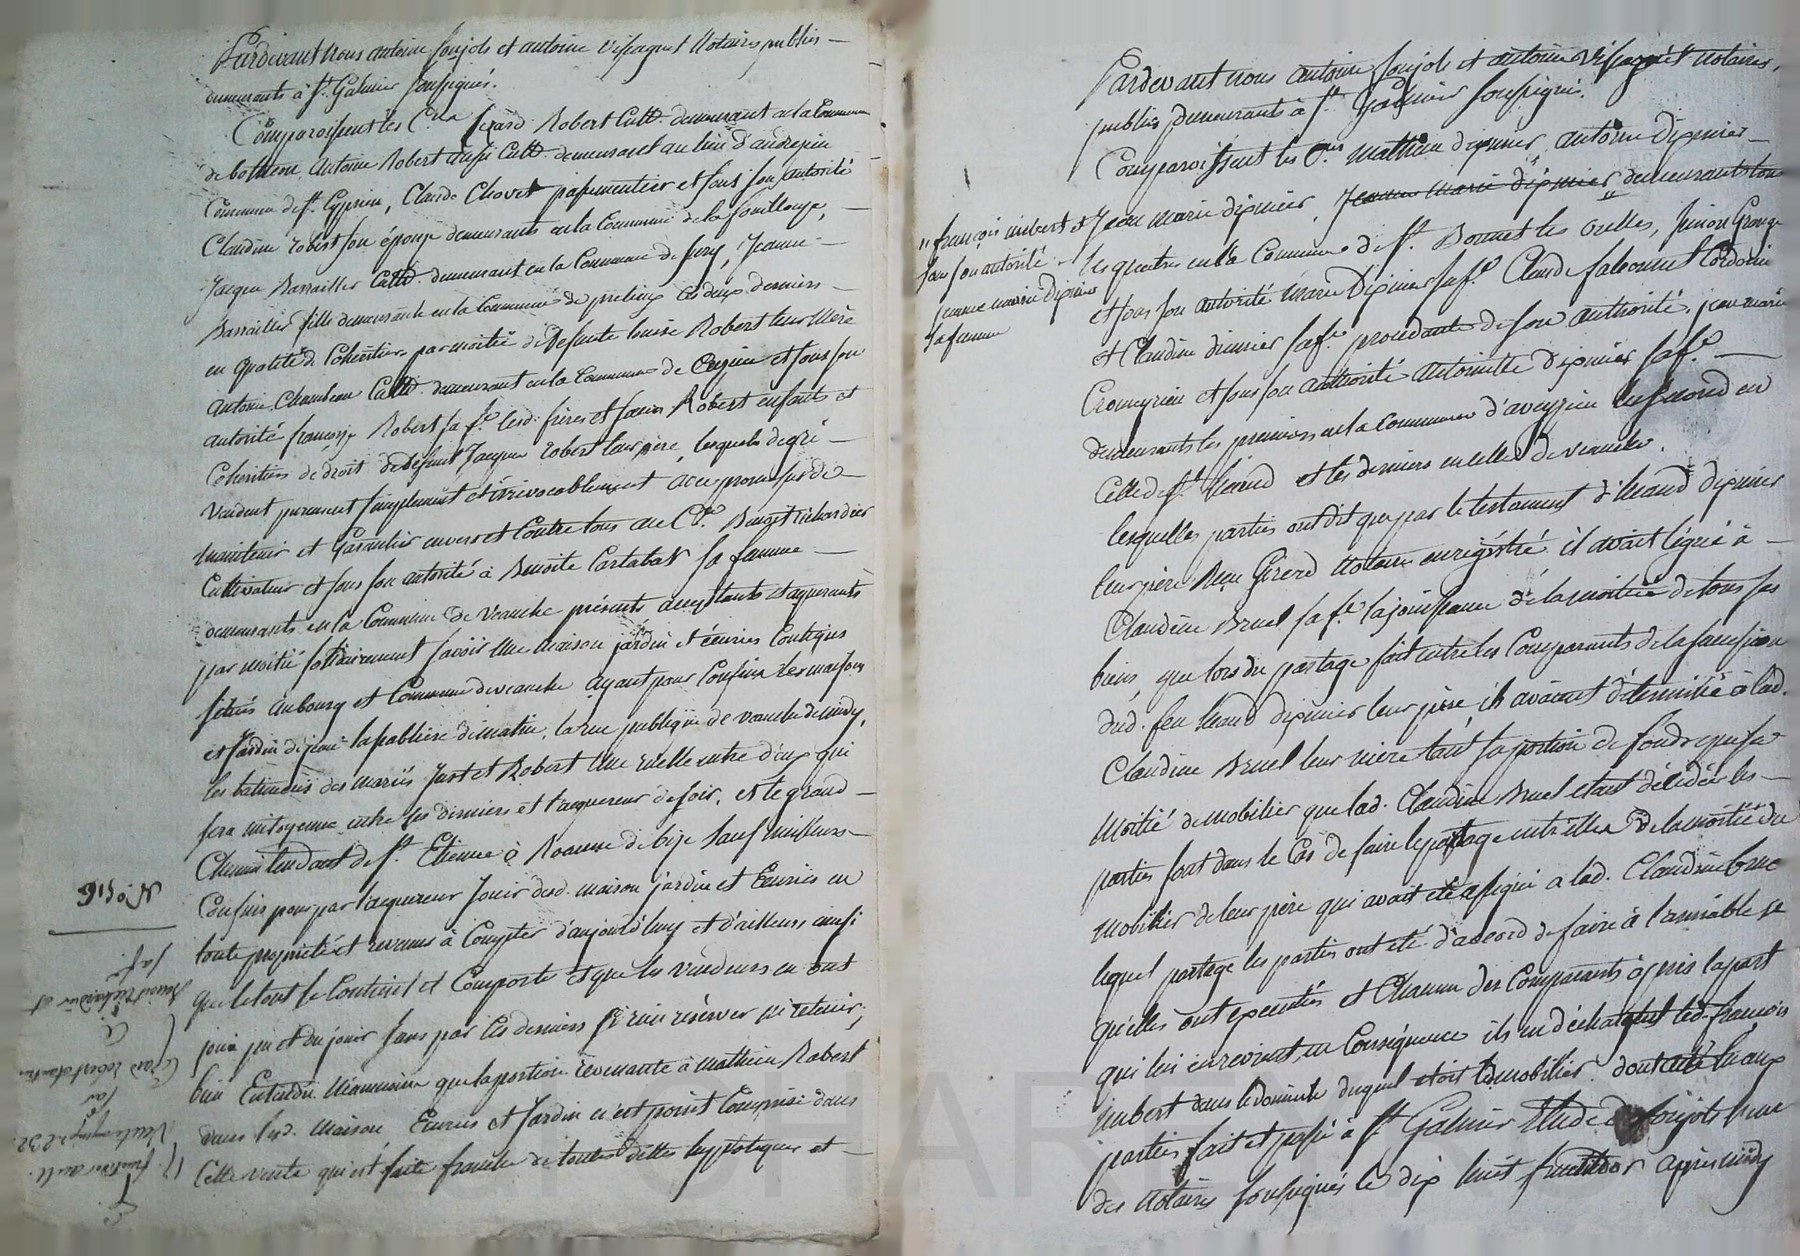 Pardevant nous antoine soujols et antoine vissaguet Notaires publics
demeurants à St. Galmier soussignés.
Comparoissent les Cns Robert Cultr. demeurant en la Commune
de bothéon, Antoine Robert aussi Cultr. demeurant au lieu d'andrezieu
Commune de St. Cyprien, Claude Chovet passementier et sous son autorité
Claudine robert son épouse demeurants en la Commune de la fouillouse,
Jacques Barrailler Cultr. demeurant en la Commune de Sury, Jeanne
Barrailler fille demeurante en la Commune de les deux derniers
en qualité de Cohéritiers par moitié de Defunte louise Robert leur Mère
antoine Chambeau Cultr. demeurant en la Commune de et sous son
autorité françoise Robert sa fe. lesd. frères et soeurs Robert enfants et
Cohéritiers de droit de Défunt Jacques robert leur père, lesquels de gré
Vendent purement simplement et irrévocablement avec promesse de
maintenir et Garantir envers et Contre tous au Cn. Benoit richardier
Cultivateur et sous son autorité à Benoite Cartabat sa femme
demeurants en la Commune de Veauche présents acceptants et aquerants
par moitié solidairement savoir Une maison jardin et écuries Contigus
situés au bourg et Commune de veauche ayant pour Confins les maisons
et Jardin de jean lapabliere de matin, la rue publique de veauche de midy,
les batiments des mariés Just et Robert Une ruelle entre d'eux qui
sera mitoyenne entre ses derniers et l'aquereur de soir, et le grand
Chemin tendant de St. Etienne à Roanne de bize Sauf meilleurs
Confins pour par l'aquereur Jouir desd. maison jardin et Ecuries en
toute propriété et revenus à Compter d'aujourd'huy et d'ailleurs ainsi
que le tout se Contient et Comporte et que les vendeurs en ont
joui pu et du jouir sans par les derniers s'y rien réserver ni retenir,
bien Entendu Néanmoins que la portion revenante à mathieu Robert
dans lesd. Maison Ecuries et Jardin n'est point Comprise dans
Cette vente qui est faite franche de toutes dettes hypotèques et
No. 516
fructidor an 11.
par
robert et autres
à
Benoit richardier et
sa fe.
Pardevant nous antoine soujols et antoine vissaguet notaires
publics demeurants à St. Galmier soussignés.
Comparoissent les Cns Mathieu dipinier, antoine Dipinier
et Jean Marie dipinier, Jeanne Marie dipinier demeurants tous
les quatre en la Commune de St. Bonnet les oulles, Simon Grange
et sous son autorité Marie Dipinier sa fe. Claude faleonnet Cordonnier
et Claudine dipinier sa fe. procédante de son authorité, jean marie
Cromeyrieu et sous son authorité antoinette Dipinier sa fe.
demeurants les premiers en la Commune d'aveyzieu le second en
Celle de St. et les derniers en celle de veauche.
lesquelles parties ont dit que par le testament d' dipinier
leur père Reçu Girerd Notaire enregistré il avait légué à
Claudine Bruel sa fe. la jouissance de la moitié de tous ses
biens, que lors du partage fait entre les Comparants de la succession
dud. feu dipinier leur père, ils avaient délimité à lad.
Claudine Bruel leur mère tant sa portion de fonds que sa
Moitié de mobilier que lad. Claudine Bruel étant décédée les
parties sont dans le Cas de faire le partage entr'elles de la moitié du
Mobilier de leur père qui avait été assigné a lad. Claudine bruel
lequel partage les parties ont été d'accord de faire à l'amiable
qu'elles ont executées et Chacun des Comparants à pris la part
qui lui en revient, en Conséquence ils en déchargent led. françois
imbert dans le domicile duquel etoit led. mobilier dont acte
parties fait et passé à St. Galmier Etude de soujols l'une
des Notaires soussignés le dix huit fructidor après midy
" françois imbert et
sous son autorité
jeanne marie Dipinier
sa femme